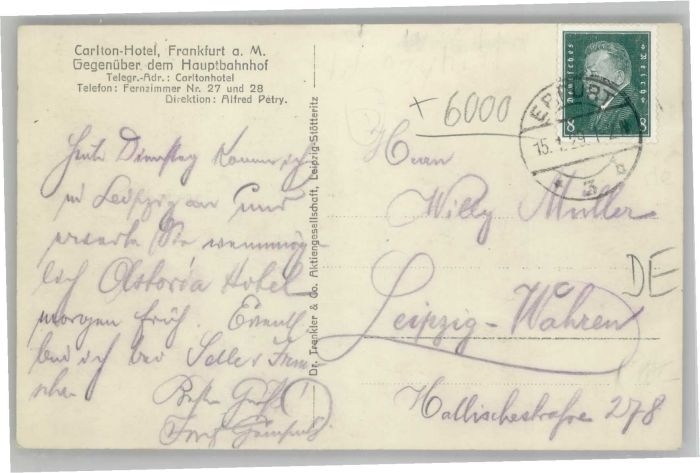 Carlton-Hotel, Frankfurt a. M.
Gegenüber dem Hauptbahnhof
Telegr.-Adr.: Carltonhotel
Telefon: Fernzimmer Nr. 27 und 28
Direktion: Alfred Petry.
Heute Dienstag komme ich
in Leipzig an und
erwarte Sie wennmög-
lich Astoria Hotel
morgen früh. Eventl
bin ich bei
Beste Grüße
Dr. Trenkler & Co. Aktiengesellschaft, Leipzig-Stötteritz
+ 6000
Deutsches Reich
8 8
ERFURT
15.1.29.
* 3 b
Herrn
Willy Müller
DE
Leipzig-Wahren
Hallischestraße 278